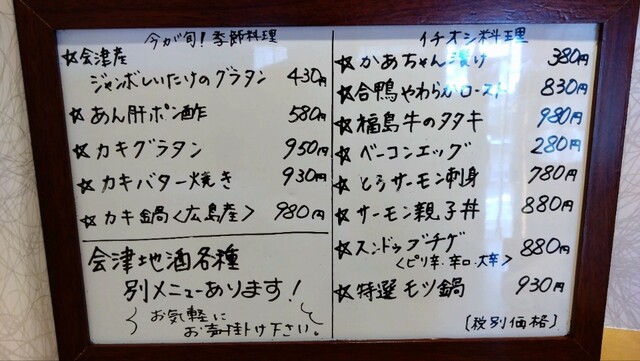 今が旬！季節料理
☆会津産
ジャンボしいたけのグラタン 430円
☆あん肝ポン酢 580円
☆カキグラタン 950円
☆カキバター焼き 930円
☆カキ鍋〈広島産〉 980円
会津地酒各種
別メニューあります！
お気軽に
お声掛け下さい。
イチオシ料理
☆かあちゃん漬け 380円
☆合鴨やわらかロースト 830円
☆福島牛のタタキ 980円
☆ベーコンエッグ 280円
☆とろサーモン刺身 780円
☆サーモン親子丼 880円
☆スンドゥブチゲ 880円
〈ピリ辛・辛口・大辛〉
☆特選モツ鍋 930円
〔税別価格〕